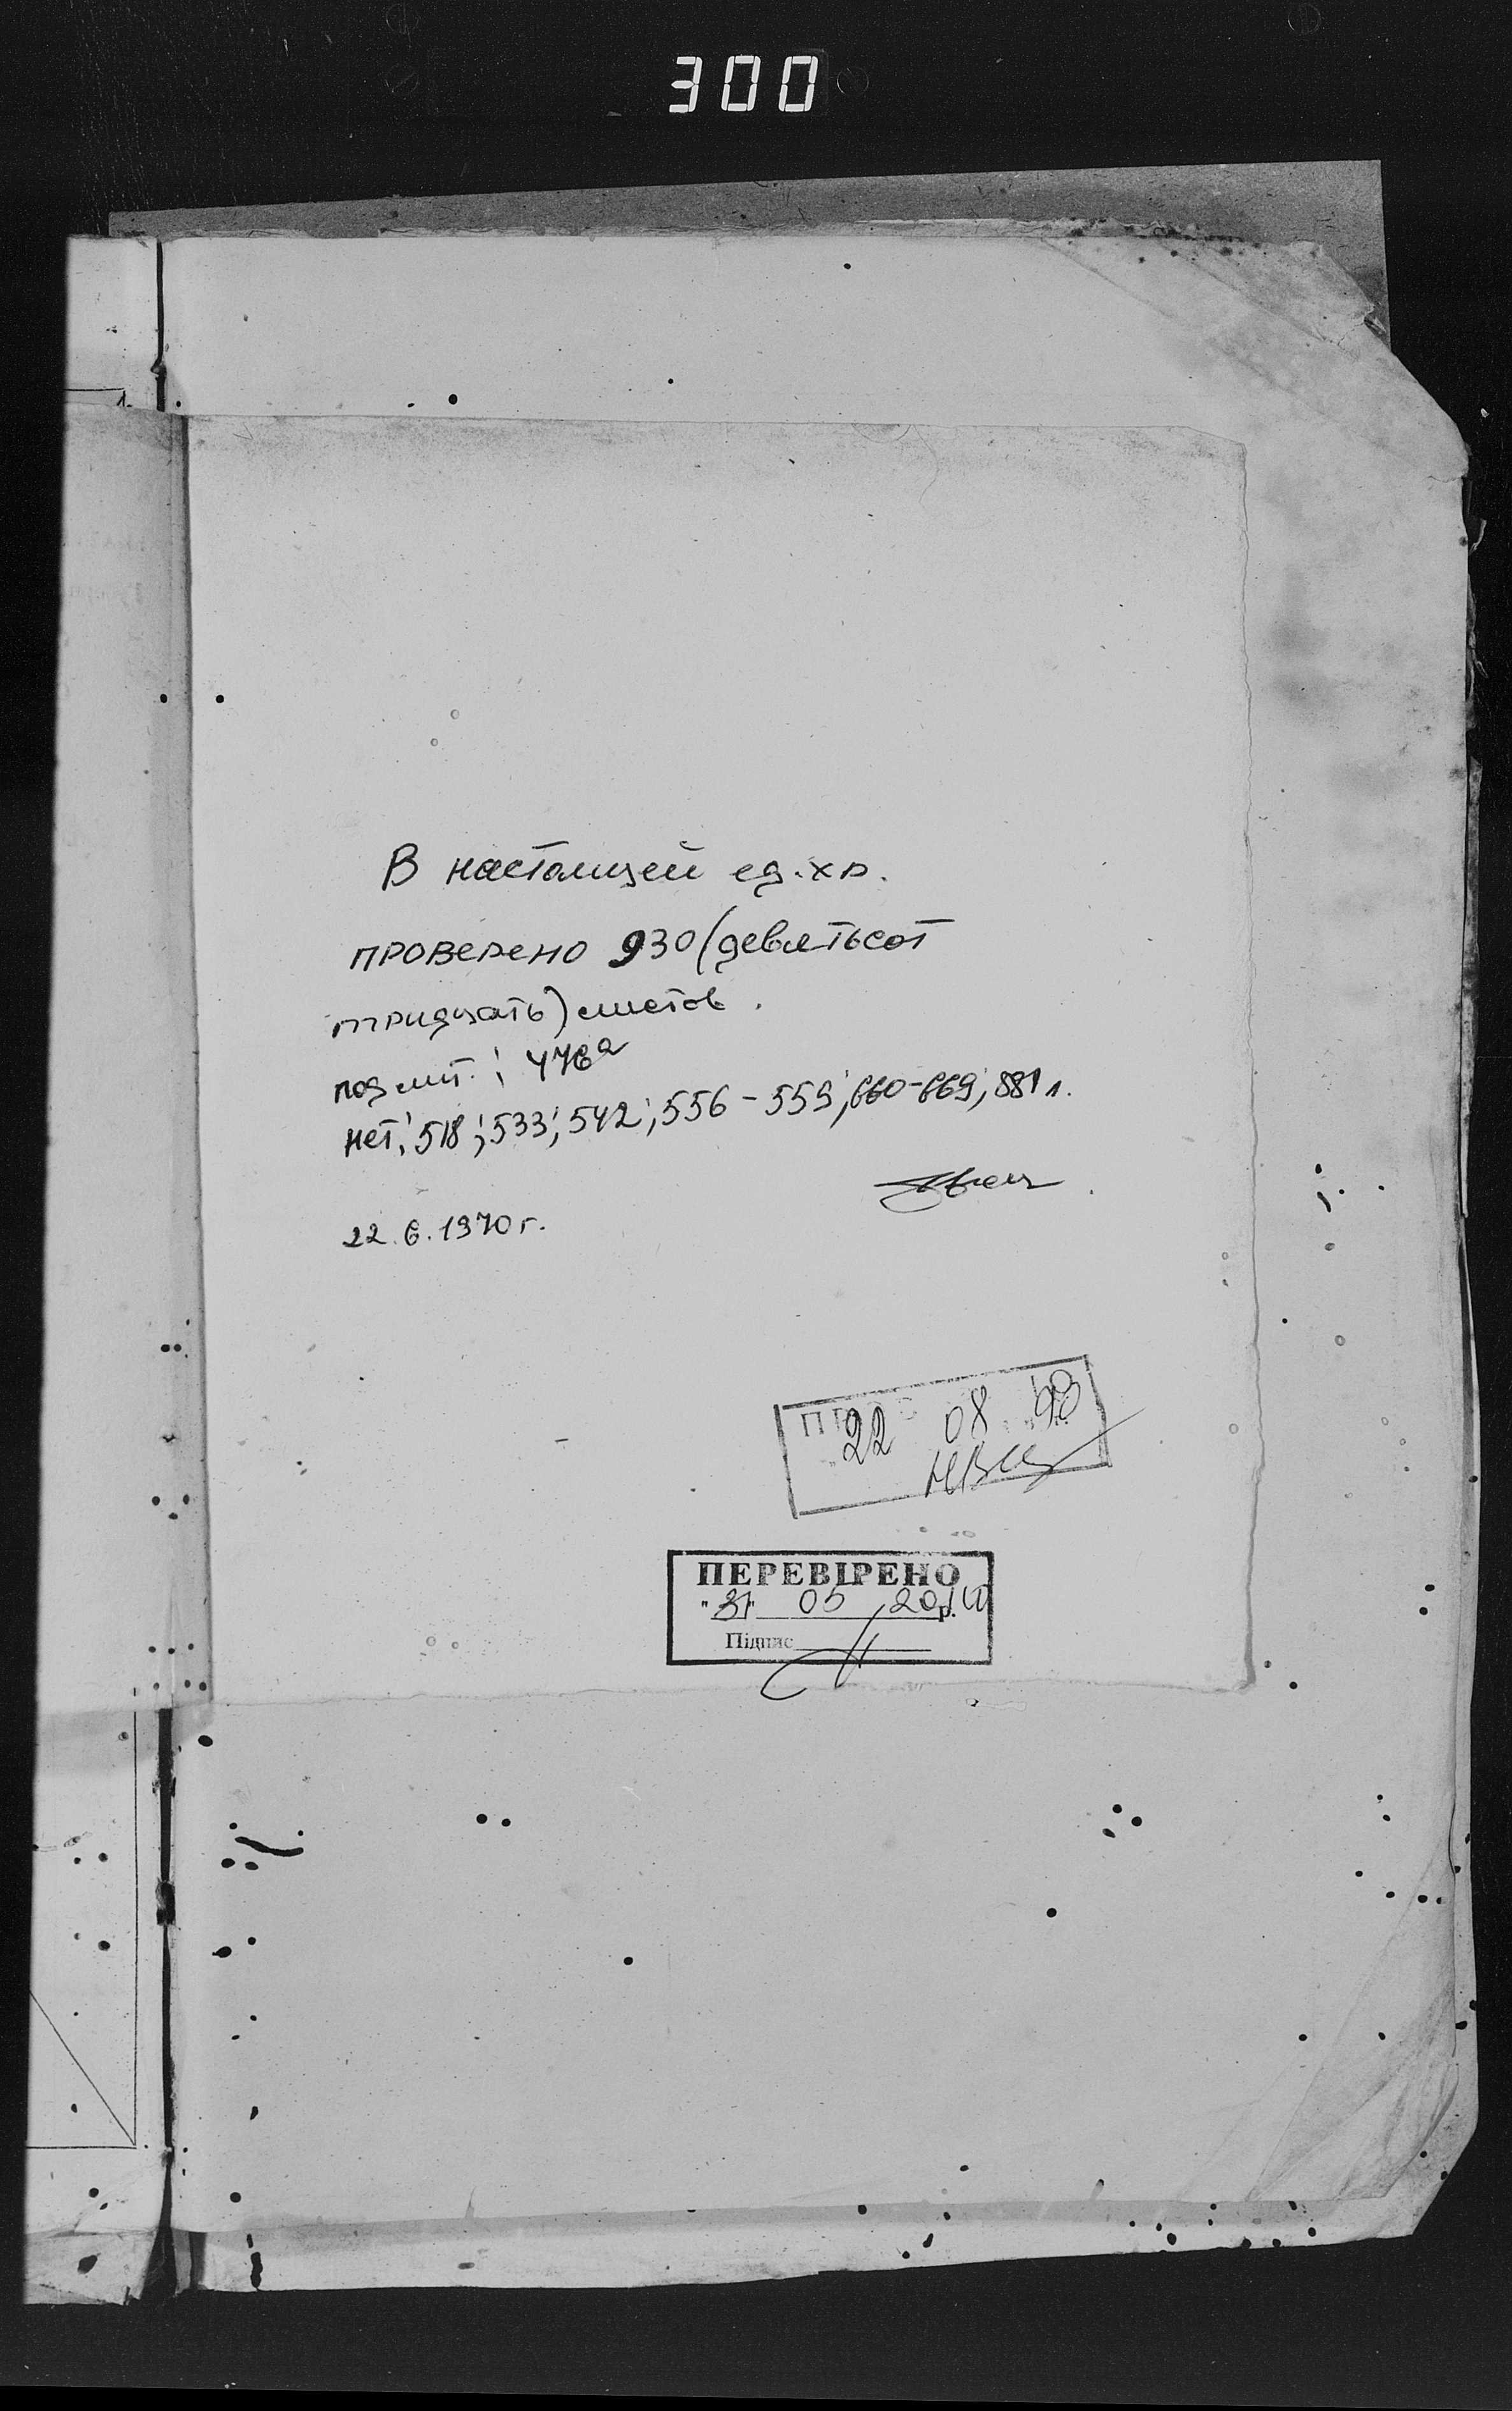 300
В настоящей ед.хр.
проверено 930 (девятьсот
тридцать) листов.
под лит.: 476а
нет: 518; 533; 542; 556-559; 660-669; 881 л.
22.6.1970 г.
22 08 93
ПЕРЕВІРЕНО
"31" 05 20 р.
Підпис